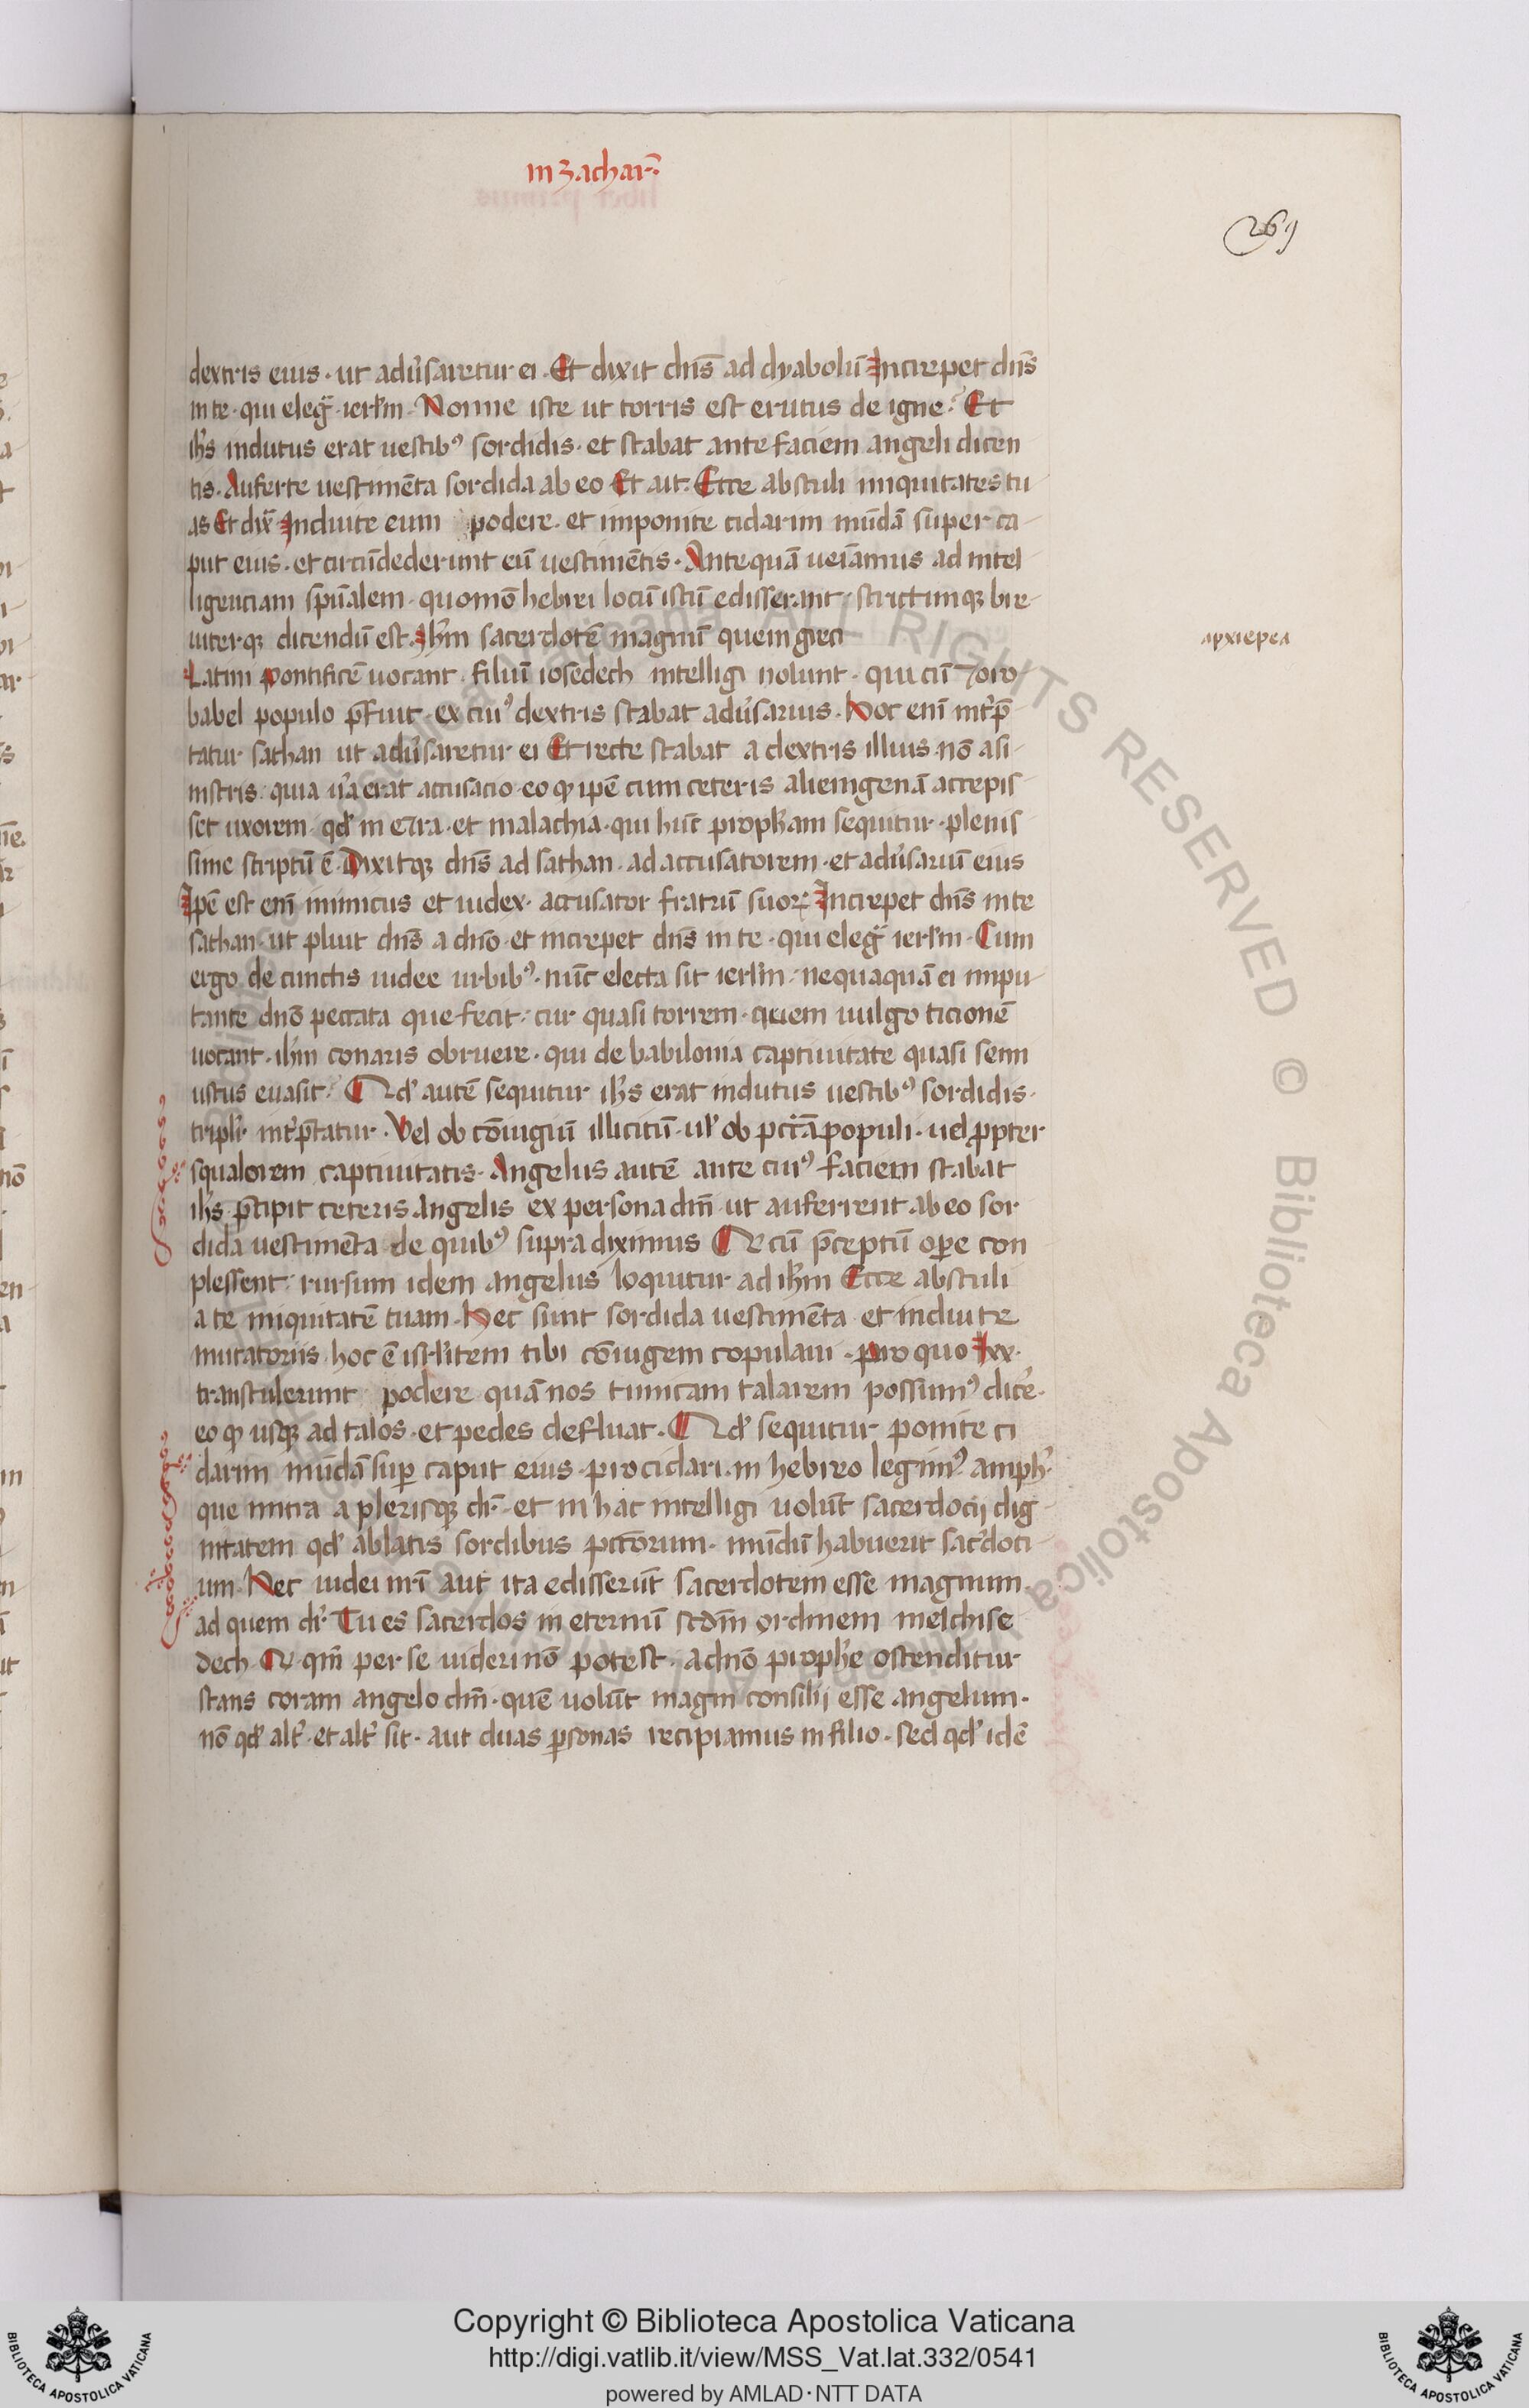 in zachar̄.
269
dextris eius · ut adũsaretur ei · Et dixit dn̄s ad dyabolū Increpet dn̄s
in te · qui elegͥt ierlm̄ · Nonne iste ut torris est erutus de igne? Et
ih̄s indutus erat uestibꝰ sordidis · et stabat ante faciem angeli dicen
tis · Auferte uestimēta sordida ab eo Et ait · Ecce abstuli iniquitates tu
as Et dix̄ Induite eum podere · et imponite cidarim mūdā super ca
put eius · et circūdederunt eū uestimētis · Antequā ueiamus ad intel
ligenciam spūalem · quomō hebrei locū istū edisserant · strictimqꝫ bre
uiterqꝫ dicendū est · Ih̄m sacerdotē magnū quem greci
αρχιερεα
Latini pontificē uocant · filiū iosedech intelligi uolunt · qui cū zoro
babel populo p̄fuit · ex cuiꝰ dextris stabat adũsarius · Hoc enī int̾p̄
tatur sathan ut adũsaretur ei Et recte stabat a dextris illius nō a si
nistris · quia ũa erat accusacio eo ꝙ ip̄e cum ceteris alienigenā accepis
set uxorem · qd̾ in ezra · et malachia · qui hūc proph̄am sequitur · plenis
sime scriptū ē · Dixitqꝫ dn̄s ad sathan · ad accusatorem · et adũsariū eius
Ip̄e est enī inimicus et iudex · accusator fratrū suoꝝ Increpet dn̄s in te
sathan · ut pluit dn̄s a dn̄o · et increpet dn̄s in te · qui elegͥt ierlm̄ · Cum
ergo de cunctis iudee urbibꝰ · nūc electa sit ierlm̄ · nequaquā ei impu
tante dn̄o peccata que fecit · cur quasi torrem · quem uulgo ticionē
uocant · ih̄m conaris obruere · qui de babilonia captiuitate quasi semi
ustus euasit? Qd̾ autē sequitur ih̄s erat indutus uestibꝰ sordidis ·
triplr̄ int̾p̄tatur · Vel ob cōiugiū illicitū · ul̾ ob pctā populi · uel ꝓpter
squalorem captiuitatis · Angelus autē ante cuiꝰ faciem stabat
ih̄s p̄cipit ceteris angelis ex persona dn̄i ut auferrent ab eo sor
dida uestimēta de quibꝰ supra diximus Qui cū p̄ceptū oꝑe con
plessent · rursum idem angelus loquitur ad ih̄m Ecce abstuli
a te iniquitatē tuam · Hec sunt sordida uestimēta et indui te
mutatoriis · hoc ē isrl̄item tibi cōiugem copulaui · pro quo lxx ·
transtulerunt podere quā nos tunicam talarem possumꝰ dic̾e ·
eo ꝙ usqꝫ ad talos · et pedes defluat · Qd̾ sequitur ponite ci
darim mūdā suꝑ caput eius · pro cidari · in hebreo legimꝰ amph̾ ·
que mitra a plerisqꝫ dr̄ · et in hac intelligi uolūt sacerdocij dig
nitatem qd̾ ablatis sordibus pctōrum · mūdū habuerit sac̾doci
um · Hec iudei nr̄i aut̄ ita edisserūt sacerdotem esse magnum
ad quem dr̄ · Tu es sacerdos in eternū scd̄m ordinem melchise
dech Et qm̄ per se uideri nō potest · a dn̄o proph̄e ostenditur
stans coram angelo dn̄i · quē uolūt magni consilij esse angelum ·
nō qd̾ alt̾ · et alt̾ sit · aut duas ꝑsonas recipiamus in filio · sed qd̾ idē
ALL RIGHTS RESERVED © Biblioteca Apostolica Vaticana
Copyright © Biblioteca Apostolica Vaticana
http://digi.vatlib.it/view/MSS_Vat.lat.332/0541
powered by AMLAD·NTT DATA
BIBLIOTECA APOSTOLICA VATICANA
BIBLIOTECA APOSTOLICA VATICANA